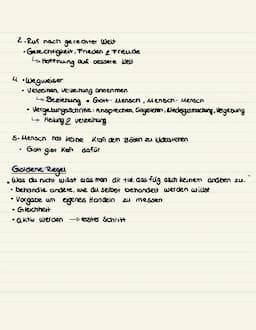 2. Ruf nach gerechter Welt
• Gerechtigkeit, Frieden & Freude
↳ Hoffnung auf bessere Welt
4. Wegweiser
• Verzeihen, Verzeihung annehmen
↳ Beziehung Gott-Mensch, Mensch-Mensch
• Vergebungsschritte: Ansprechen, Eingestehen, Wiedergutmachung, Vergebung
↳ Heilung & Verzeihung
5. Mensch hat keine Kraft den Bösen zu widerstehen
• Gott gibt Kraft dafür
Goldene Regel
„Was du nicht willst was man dir tut, das füg auch keinem anderen zu."
• behandle andere, wie du selber behandelt werden willst
• Vorgabe um eigenes Handeln zu messen
• Gleichheit
• aktiv werden → erster Schritt